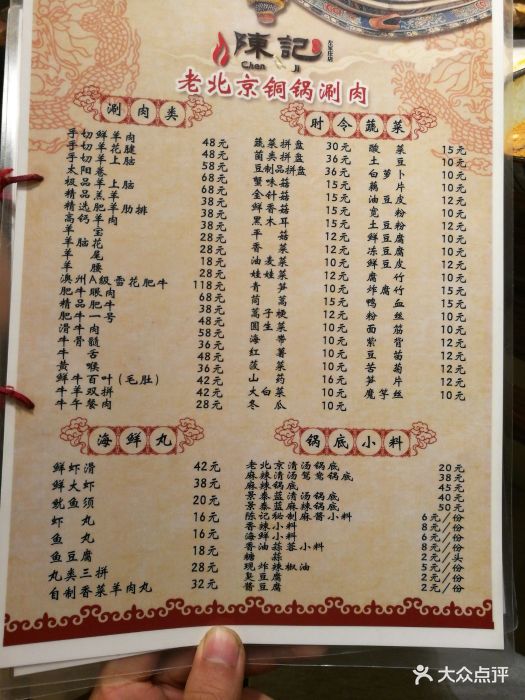 陳記
Chen Ji
老北京铜锅涮肉
涮肉类
手切鲜羊肉 48元
手切羊花腱 48元
手切羊上脑 58元
太阳卷 68元
极品羊上脑 48元
精品羔羊 38元
精选肥羊肋排 38元
高钙羊肉 38元
羊宝 38元
羊脑花 28元
羊尾 28元
羊腰 18元
澳州A級雪花肥牛 118元
肥牛眼肉 68元
精品肥牛 38元
肥牛一号 48元
滑牛肉 58元
牛骨髓 36元
牛舌 36元
黄喉 36元
鲜牛百叶(毛肚) 42元
牛羊双拼 42元
牛午餐肉 28元
时令蔬菜
蔬菜拼盘 30元
菌类拼盘 36元
豆制品拼盘 36元
蟹味菇 12元
金针菇 12元
鲜香菇 12元
黑木耳 12元
平菇 12元
香菜 12元
油麦菜 12元
娃娃菜 12元
青笋 10元
茼蒿 10元
蒿子梗 10元
圆生菜 10元
海带 10元
红薯 10元
菠菜 10元
山药 16元
大白菜 10元
冬瓜 10元
酸菜 15元
土豆 10元
白萝卜 10元
藕片 10元
油豆皮 12元
宽粉 10元
土豆粉 12元
鲜豆腐 10元
冻豆腐 10元
鲜豆皮 12元
腐竹 12元
炸腐竹 15元
鸭血 15元
粉丝 10元
面筋 10元
紫背 12元
豆苗 12元
苦菊 12元
笋片 12元
魔芋丝 10元
海鲜丸
鲜虾滑 42元
鲜大虾 38元
鱿鱼须 20元
虾丸 16元
鱼丸 16元
鱼豆腐 18元
丸类三拼 28元
自制香菜羊肉丸 32元
锅底小料
老北京清汤锅底 20元
麻辣清汤鸳鸯锅底 38元
麻辣锅底 45元
景泰蓝清汤锅底 40元
景泰蓝麻辣锅底 50元
陈记秘制麻酱小料 6元/份
香辣小料 8元/份
海鲜小料 6元/份
香油蒜蓉小料 8元/份
糖蒜 2元/头
现炸辣椒油 5元/份
臭豆腐 2元/份
酱豆腐 2元/份
大众点评